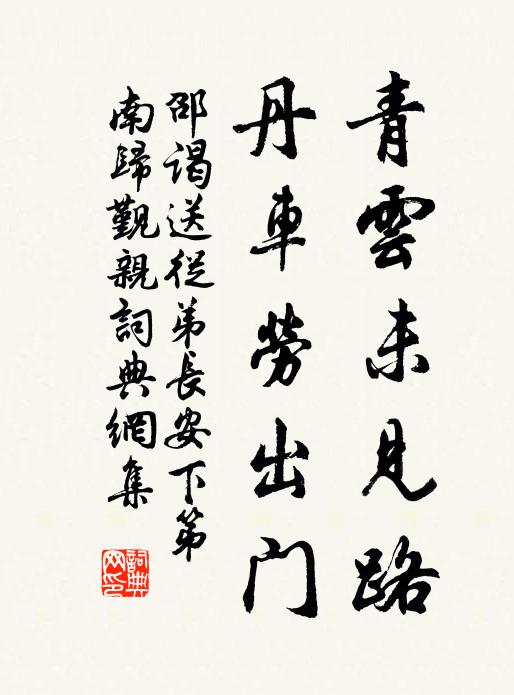 青雲未見路
丹車勞出門
邵謁送從弟長安下第
南歸覲親詞典網集
詞典
网印